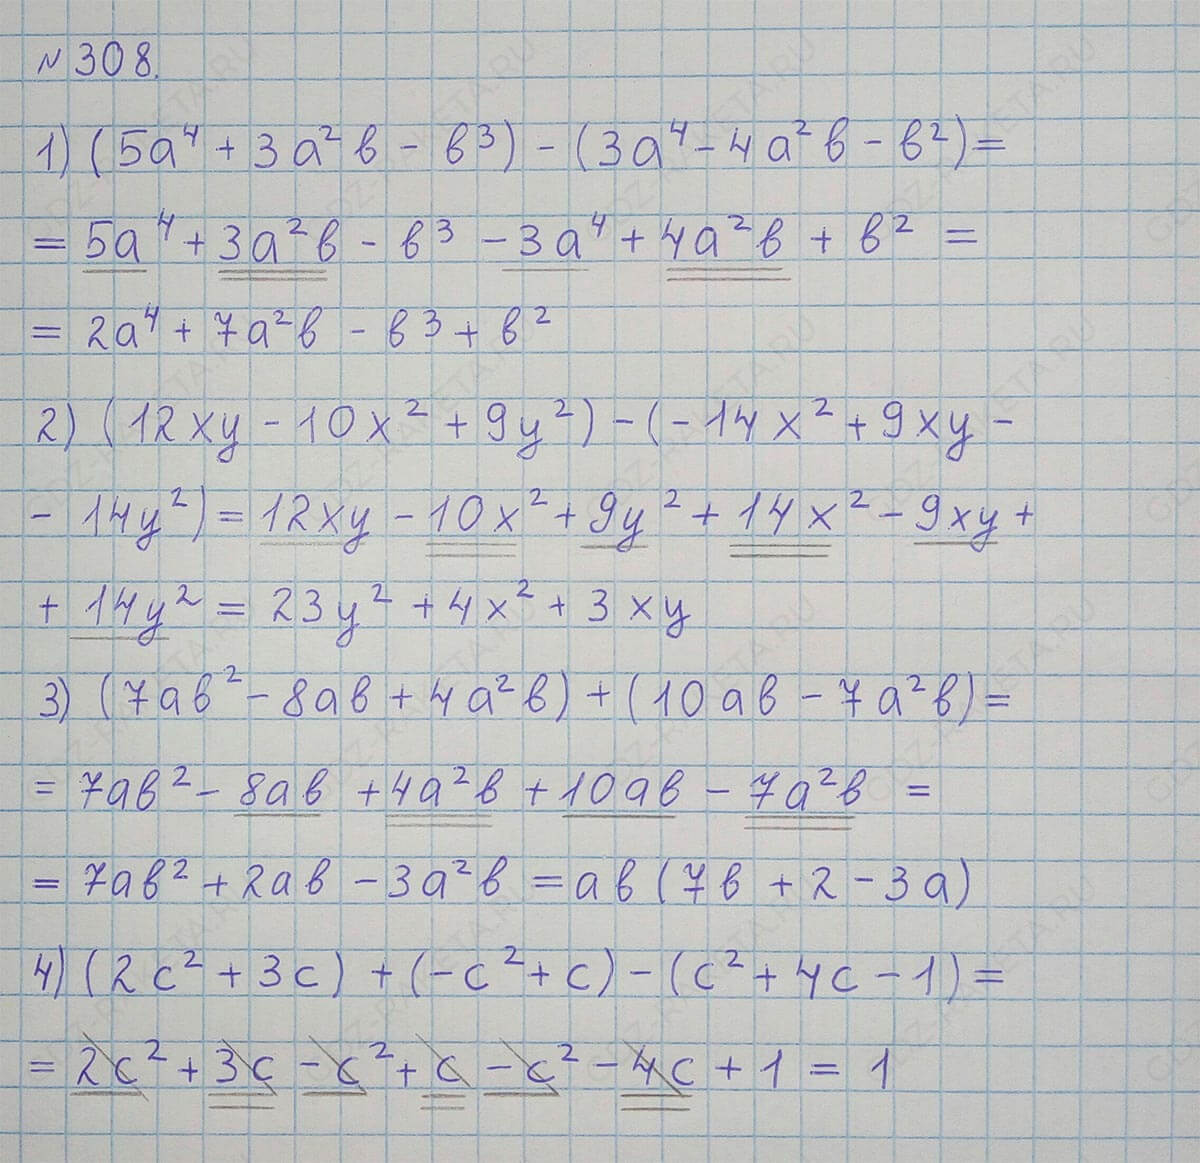 №308.
1) (5a⁴ + 3a²в - в³) - (3a⁴ - 4a²в - в²) =
= 5a⁴ + 3a²в - в³ - 3a⁴ + 4a²в + в² =
= 2a⁴ + 7a²в - в³ + в²
2) (12xy - 10x² + 9y²) - (-14x² + 9xy -
- 14y²) = 12xy - 10x² + 9y² + 14x² - 9xy +
+ 14y² = 23y² + 4x² + 3xy
3) (7aв² - 8aв + 4a²в) + (10aв - 7a²в) =
= 7aв² - 8aв + 4a²в + 10aв - 7a²в =
= 7aв² + 2aв - 3a²в = aв (7в + 2 - 3a)
4) (2c² + 3c) + (-c² + c) - (c² + 4c - 1) =
= 2c² + 3c - c² + c - c² - 4c + 1 = 1
GDZ-RAKETA.RU